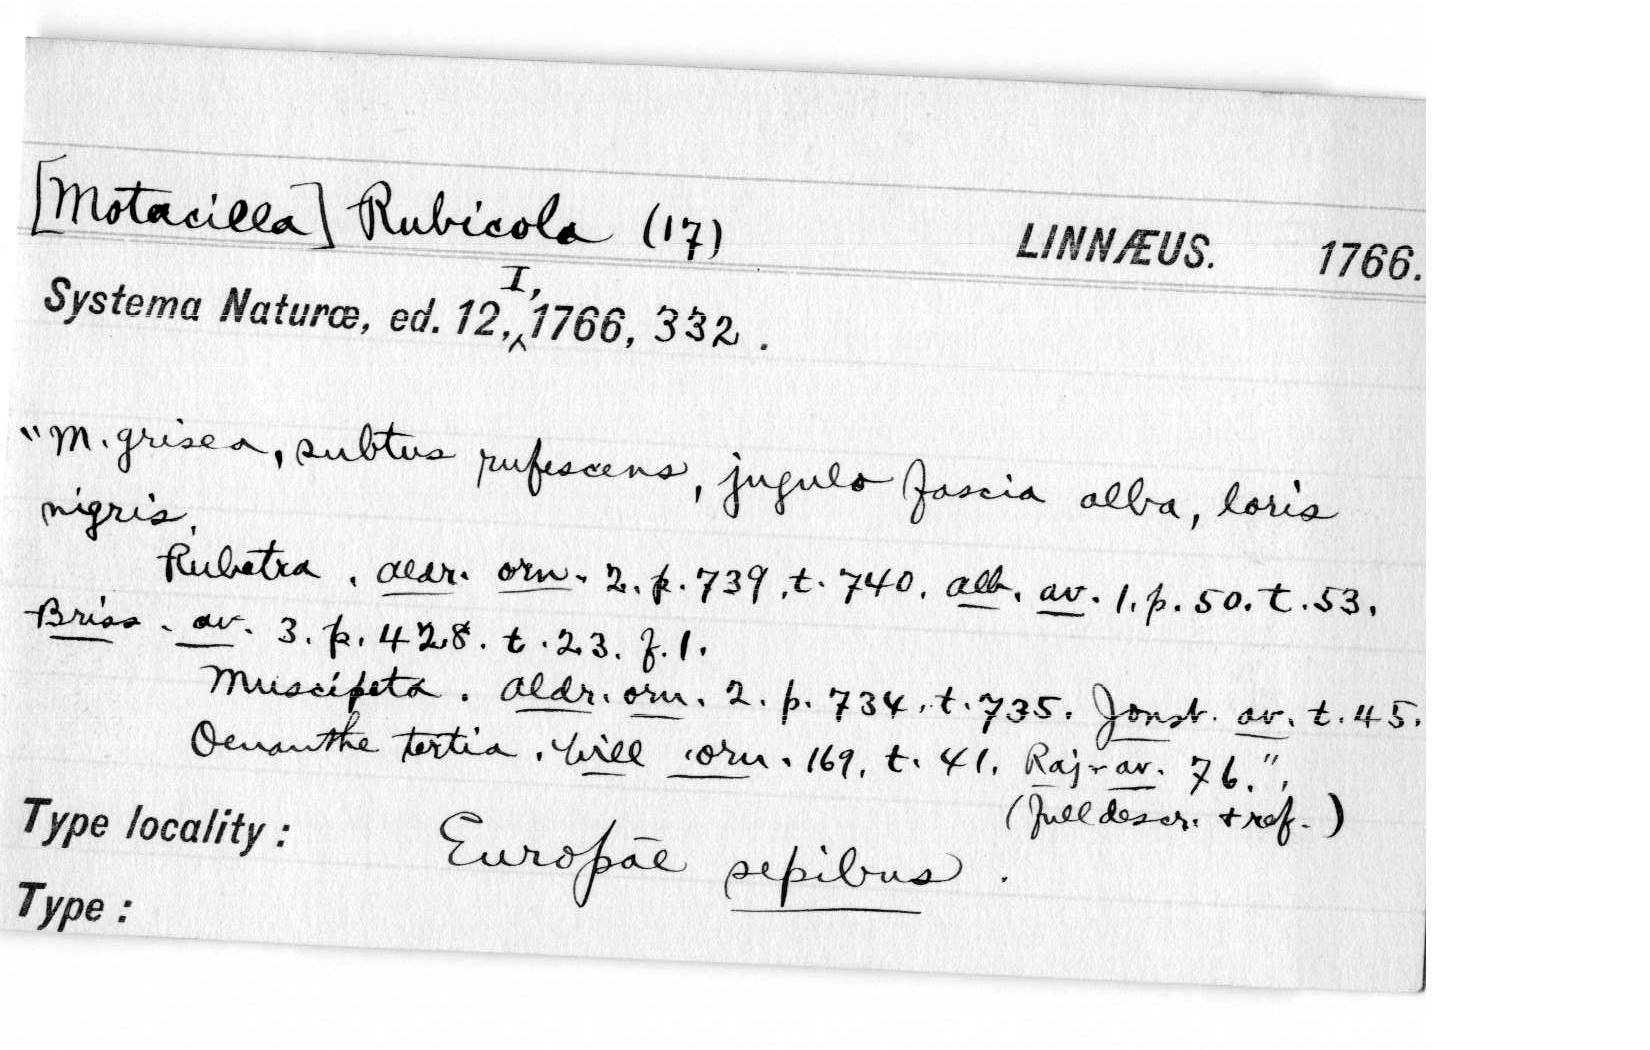 [Motacilla] Rubicola (17) LINNÆUS. 1766.
Systema Naturæ, ed. 12, I, 1766, 332.
"M. grisea, subtus rufescens, jugulo fascia alba, loris
nigris.
Rubetra. aldr. orn. 2. p. 739. t. 740. alb. av. 1. p. 50. t. 53.
Briss. av. 3. p. 428. t. 23. f. 1.
Muscipeta. aldr. orn. 2. p. 734. t. 735. Jonst. av. t. 45.
Oenanthe tertia. Will. orn. 169. t. 41. Raj. av. 76.",
(full descr. + ref.)
Type locality: Europāe sepibus.
Type: